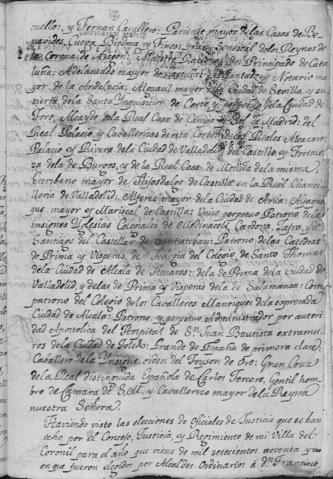 cuellor, y Fernan Cavallero: Pariente mayor de las Casas de Be-
navides, Cueva, Biedma y Fines: Gran Senescal de los Reynos de
la Corona de Aragon: Maestre Racional del Principado de Cata
luña: Adelantado mayor de Castilla: Adelantado y Notario ma-
yor de la Andalucia: Alguacil mayor de la Ciudad de Sevilla, y su
tierra, de la Santa Inquisicion de Corte, y perpetuo de la Ciudad de
Toro, Alcayde de la Real Casa de Campo y Sol de Madrid: del
Real Palacio, y Cavallerizas de esta Corte: de los Reales Alcazar
Palacio y Rivera de la Ciudad de Valladolid: del Castillo y Fortale
za de la de Burgos, y de la Real Casa de Moneda de la misma
Escribano mayor de Hijosdalgo de Castilla en la Real Chanci-
lleria de Valladolid: Alferez mayor de la Ciudad de Avila:
que mayor y Mariscal de Castilla: Unico perpetuo Patrono de las
insignes Yglesias Colegiales de Medinaceli, Cardona, Zafra, y de
Santiago del Castellar de Patrono de las Catedras
de Prima y Visperas de del Colegio de Santo Thomas
de la Ciudad de Alcala de Henares: de la de Prima de la Ciudad de
Valladolid y de las de Prima y Visperas de la de Salamanca: Com
patrono del Colegio de los Cavalleros Manriques de la expresada
Ciudad de Alcala: Patrono, y perpetuo Administrador por autori
dad Apostolica del Hospital de Sn. Juan Bautista extramu-
ros de la Ciudad de Toledo: Grande de España de primera clase:
Cavallero de la Insigne orden del Toyson de Oro: Gran Cruz
de la Real distinguida Española de Carlos Tercero, Gentil hom
bre de Camara de S.M. y Cavallerizo mayor de la Reyna
nuestra Señora.
Haviendo visto las elecciones de oficiales de Justicia que se han
echo por el Concejo, Justicia, y Regimiento de mi Villa del
Coronil para el año que viene de mil setecientos noventa y
en que fueron elegidos por Alcaldes Ordinarios á Dn. Francisco